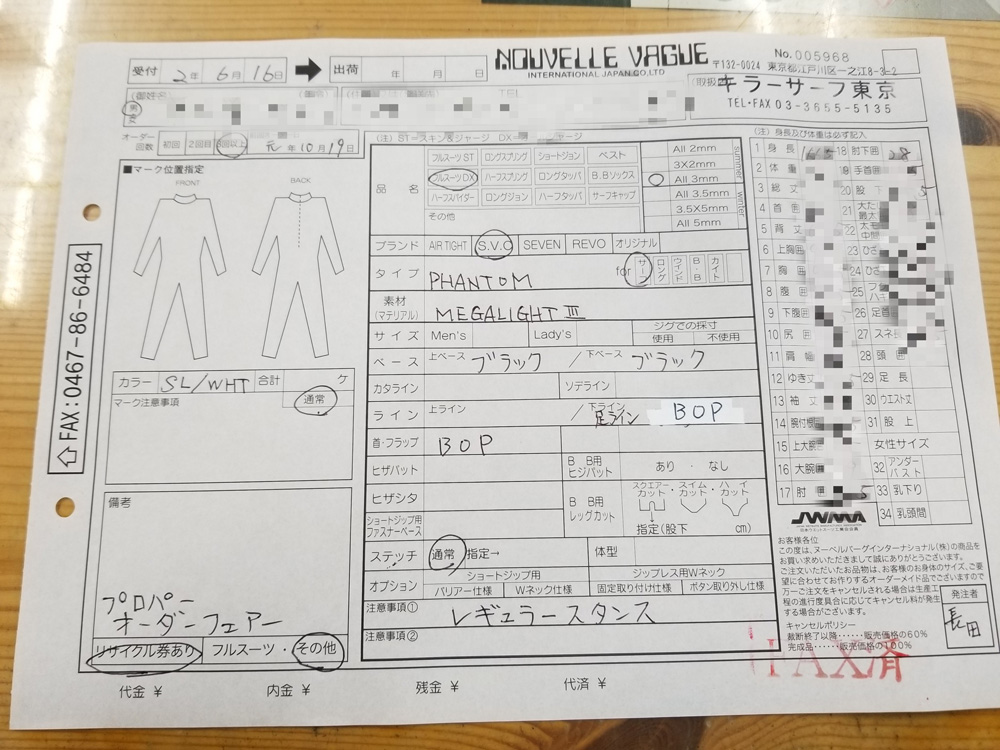 NOUVELLE VAGUE
INTERNATIONAL JAPAN CO,LTD
No.005968
〒132-0024 東京都江戸川区一之江8-3-2
受付 2年 6月 16日
出荷 年 月 日
取扱店
キラーサーフ東京
TEL・FAX 03-3655-5135
御姓名
男
女
オーダー回数 初回 2回目 3回以上 元年10月19日
(注) ST=スキン&ジャージ DX=
(注) 身長及び体重は必ず記入
■マーク位置指定
FRONT
BACK
カラー SL/WHT 合計 ケ
マーク注意事項 通常
備考
プロパー
オーダーフェアー
リサイクル券あり フルスーツ・その他
FAX:0467-86-6484
品名
フルスーツST ロングスプリング ショートジョン ベスト
フルスーツDX ハーフスプリング ロングタッパ B.Bソックス
ハーフスパイダー ロングジョン ハーフタッパ サーフキャップ
その他
All 2mm
3X2mm
All 3mm
All 3.5mm
3.5X5mm
All 5mm
summer
winter
ブランド AIR TIGHT S.V.O SEVEN REVO オリジナル
タイプ PHANTOM for サーフ ロング ウインド B・B カイト
素材(マテリアル) MEGALIGHT III
サイズ Men's Lady's ジグでの採寸 使用 不使用
ベース 上ベース ブラック / 下ベース ブラック
カタライン ソデライン
ライン 上ライン / 下ライン 足ライン BOP
首・フラップ BOP
ヒザパット B B用ヒジパット あり・なし
ヒザシタ B B用レッグカット スクエアーカット・スイムカット・ハイカット
ショートジップ用ファスナーベース 指定(股下 cm)
ステッチ 通常 指定→ 体型
オプション ショートジップ用 ジップレス用Wネック
バリアー仕様 Wネック仕様 固定取り付け仕様 ボタン取り外し仕様
注意事項① レギュラースタンス
注意事項②
1 身長
2 体重
3 総丈
4 首囲
5 背丈
6 上胸囲
7 胸囲
8 腹囲
9 下腹囲
10 尻囲
11 肩幅
12 ゆき丈
13 袖丈
14 腕付根
15 上大腕
16 大腕
17 肘
18 肘下囲 28
19 手首囲
20 股下
21
22
23 ひざ
24 ひざ
25
26 足首
27 スネ
28 頭囲
29 足長
30 ウエスト丈
31 股上
女性サイズ
32 アンダーバスト
33 乳下り
34 乳頭間
JWMA
お客様各位
この度は、ヌーベルバーグインターナショナル(株)の商品を
お買い求めいただきまして誠にありがとうございます。
ご注文いただいたお品物は、お客様のお身体のサイズ、ご要
望に合わせてお作りするオーダーメイド品でございますので
万一ご注文をキャンセルされる場合は生産工
程の進行度具合に応じてキャンセル料が発生
する場合がございます。
キャンセルポリシー
裁断終了以降……販売価格の60%
完成品……販売価格の100%
発注者
長田
FAX済
代金 ¥ 内金 ¥ 残金 ¥ 代済 ¥